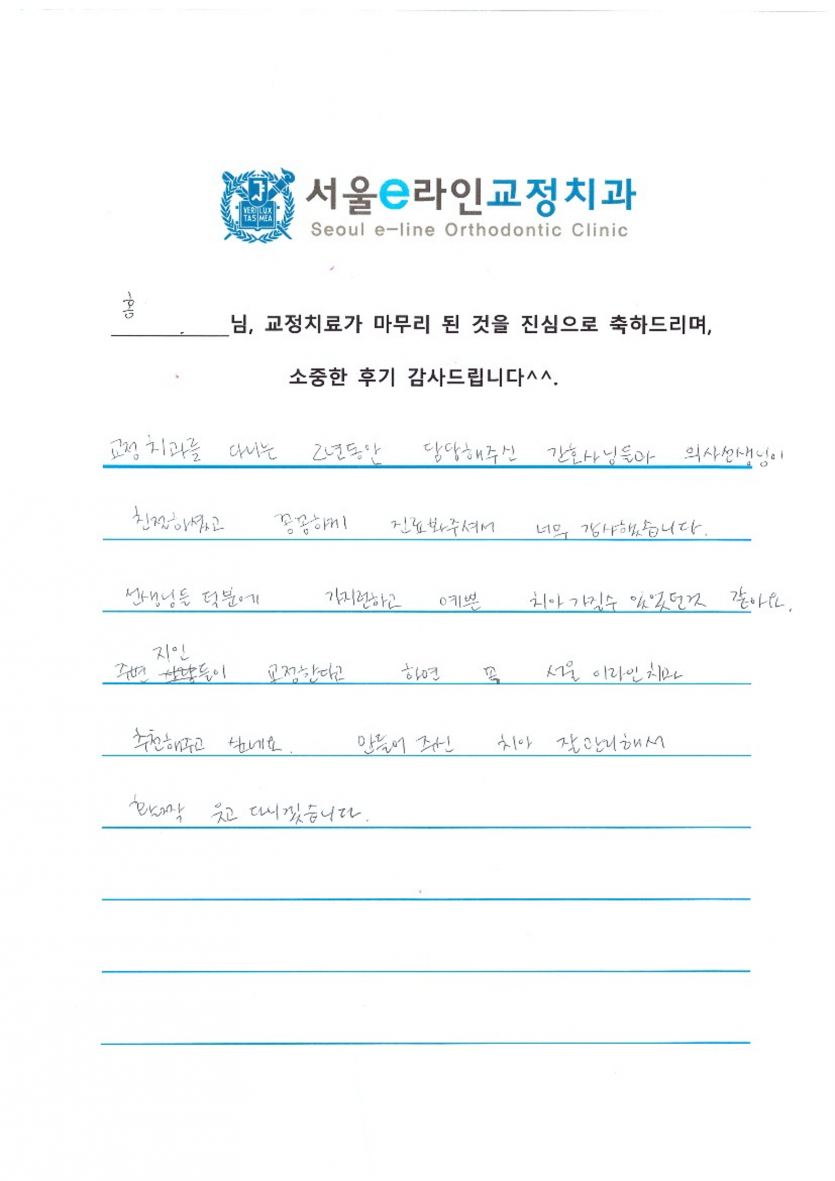 VERI LUX
TAS MEA
서울e라인교정치과
Seoul e-line Orthodontic Clinic
홍
님, 교정치료가 마무리 된 것을 진심으로 축하드리며,
소중한 후기 감사드립니다^^.
교정 치과를 다니는 2년동안 담당해주신 간호사님들과 의사선생님이
친절하셨고 꼼꼼하게 진료봐주셔서 너무 감사했습니다.
선생님들 덕분에 가지런하고 예쁜 치아 가질수 있었던것 같아요.
주변 지인들이 교정한다고 하면 꼭 서울 이라인치과
추천해주고 싶네요. 만들어 주신 치아 잘관리해서
활짝 웃고 다니겠습니다.